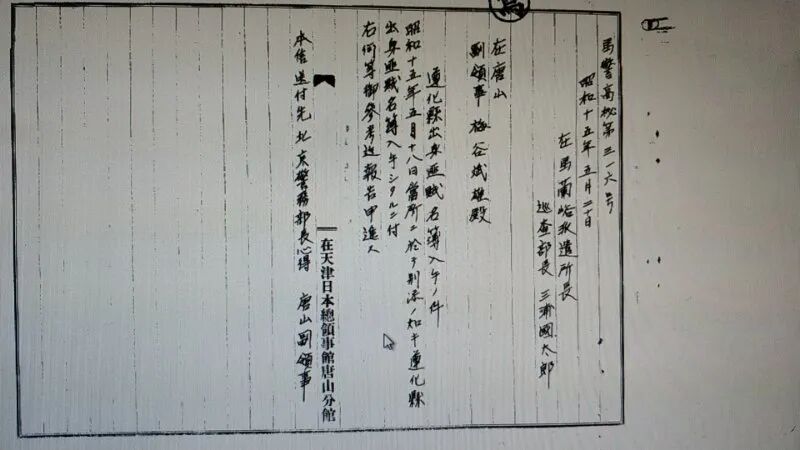 馬警高秘第三一六号
昭和十五年五月二十日
在馬蘭峪派遣所長
巡查部長 三浦國太郎
在唐山
副領事 梅谷斌雄殿
遵化縣出身匪賊名簿入手ノ件
昭和十五年五月十八日當所ニ於テ別添ノ如キ遵化縣
出身匪賊名簿入手シタルニ付
右何等御參考迄報告申進ス
本信送付先 北京警務部長心得 唐山副領事
在天津日本總領事館唐山分館